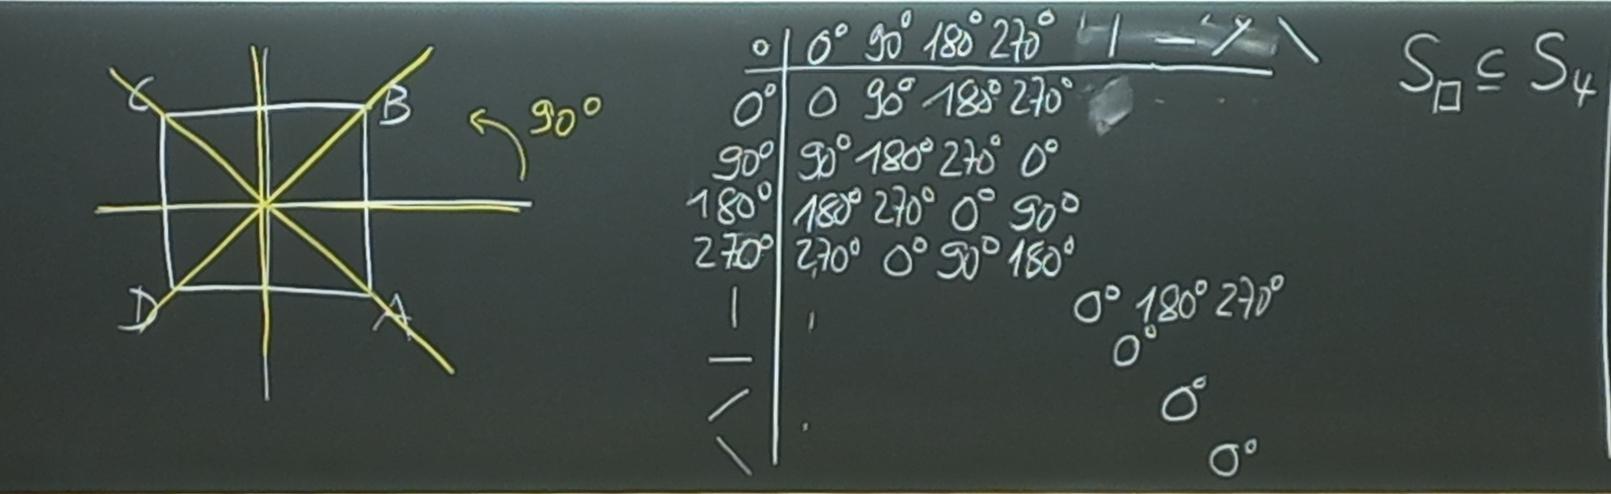 C B 90°
D A
∘ 0° 90° 180° 270° | — / \
0° 0 90° 180° 270°
90° 90° 180° 270° 0°
180° 180° 270° 0° 90°
270° 270° 0° 90° 180°
| 0° 180° 270°
— 0°
/ 0°
\ 0°
S□ ⊆ S4